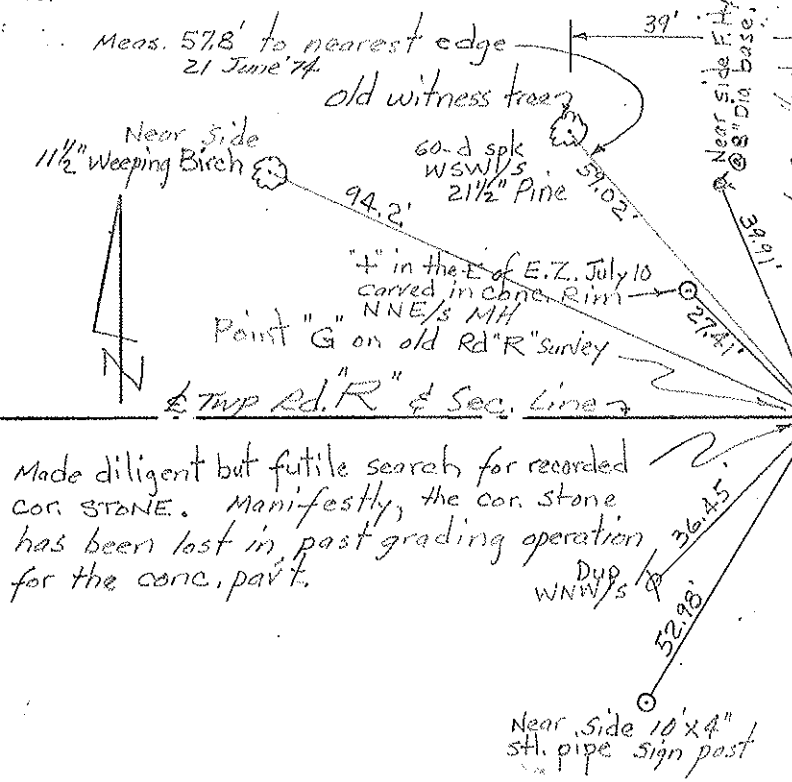 Meas. 57.8' to nearest edge
21 June '74
39'
old witness tree
Near side F. Hy
@ 8" Dia base.
Near Side
11½" Weeping Birch
60-d spk
WSW/s
21½" Pine
94.2'
59.02'
39.91'
"+" in the E of E.Z. July 10
carved in conc. Rim
NNE/s MH
27.41'
Point "G" on old Rd "R" survey
N
℄ Twp Rd. "R" & Sec. Line
Made diligent but futile search for recorded
cor. STONE. Manifestly, the cor. stone
has been lost in past grading operation
for the conc. pav't.
36.45'
WNW/s
52.98'
Near Side 10'x4"
stl. pipe sign post